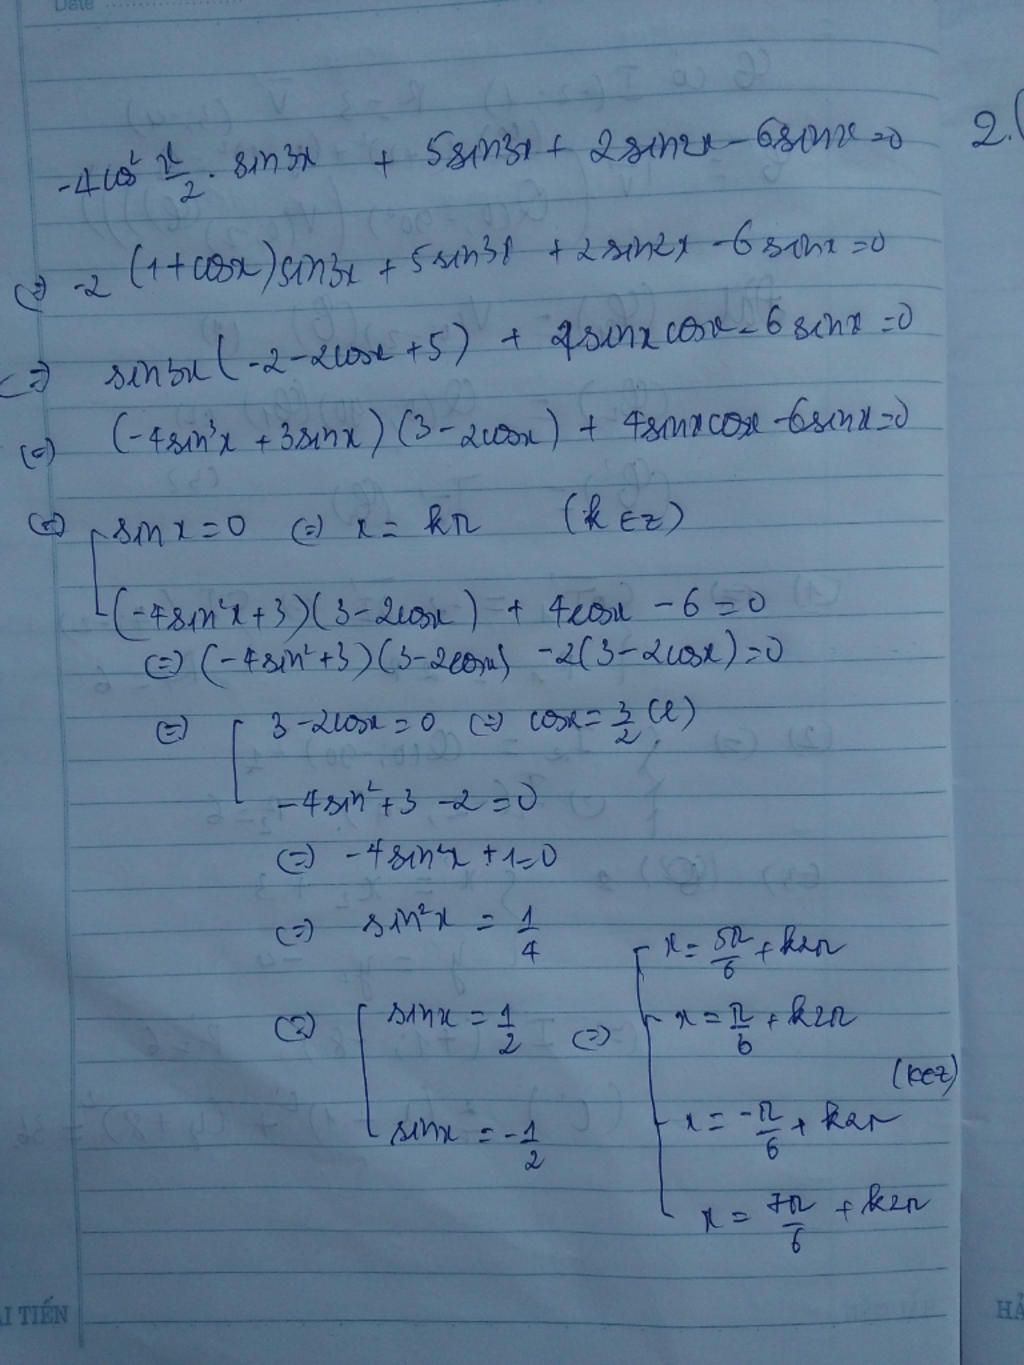 Date
2.(
-4cos² x/2 . sin3x + 5sin3x + 2sin2x - 6sinx = 0
(=) -2 (1+cosx) sin3x + 5sin3x + 2sin2x - 6sinx = 0
(=) sin3x (-2 - 2cosx + 5) + 4sinxcosx - 6sinx = 0
(=) (-4sin³x + 3sinx) (3 - 2cosx) + 4sinxcosx - 6sinx = 0
(=) [ sinx = 0 (=) x = kπ (k∈Z)
(-4sin²x + 3)(3 - 2cosx) + 4cosx - 6 = 0
(=) (-4sin² + 3)(3 - 2cosx) - 2(3 - 2cosx) = 0
(=) [ 3 - 2cosx = 0 (=) cosx = 3/2 (l)
-4sin² + 3 - 2 = 0
(=) -4sin²x + 1 = 0
(=) sin²x = 1/4
(=) [ sinx = 1/2 (=) [ x = 5π/6 + k2π
x = π/6 + k2π
(k∈Z)
sinx = -1/2
x = -π/6 + k2π
x = 7π/6 + k2π
ẢI TIẾN
HẢ